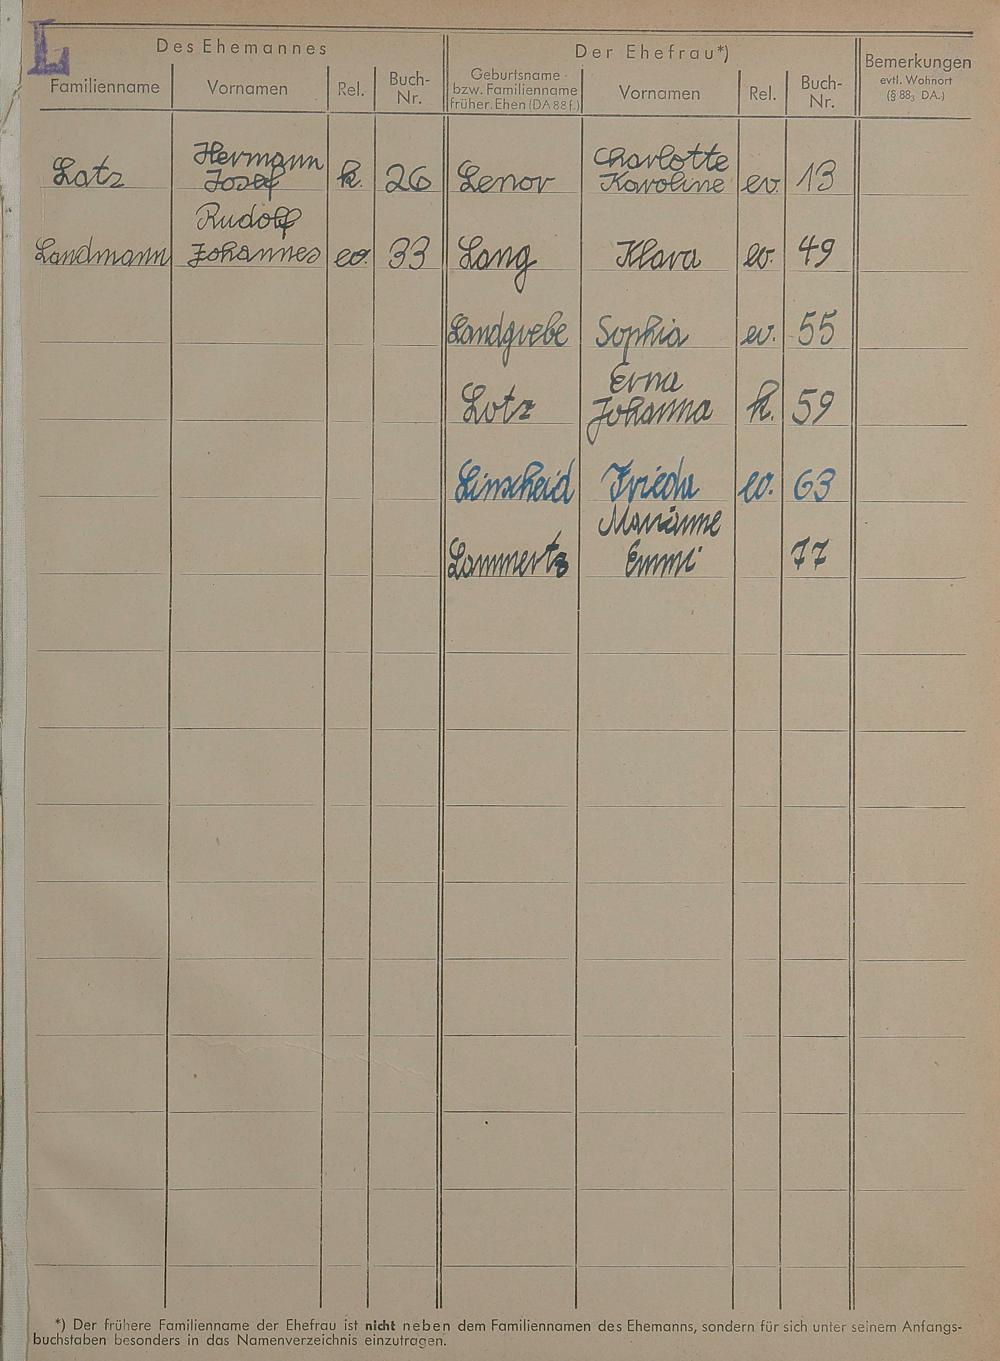 L
Des Ehemannes Der Ehefrau*) Bemerkungen evtl. Wohnort (§ 88₃ DA.)
Familienname Vornamen Rel. Buch-Nr. Geburtsname bzw. Familienname früher. Ehen (DA 88 f.) Vornamen Rel. Buch-Nr.
Latz Hermann Josef k. 26 Lenor Charlotte Karoline ev. 13
Landmann Rudolf Johannes ev. 33 Lang Klara ev. 49
Landgrebe Sophia ev. 55
Lotz Erna Johanna k. 59
Linscheid Frieda ev. 63
Lammertz Marianne Emmi 77
*) Der frühere Familienname der Ehefrau ist nicht neben dem Familiennamen des Ehemanns, sondern für sich unter seinem Anfangs-
buchstaben besonders in das Namenverzeichnis einzutragen.